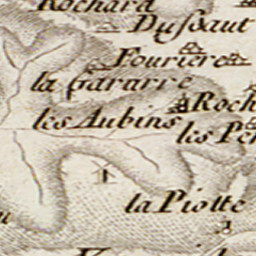 Rochard
Dussaut
Fouriere
la Gararre
Roch
les Aubins
les Per
la Piotte